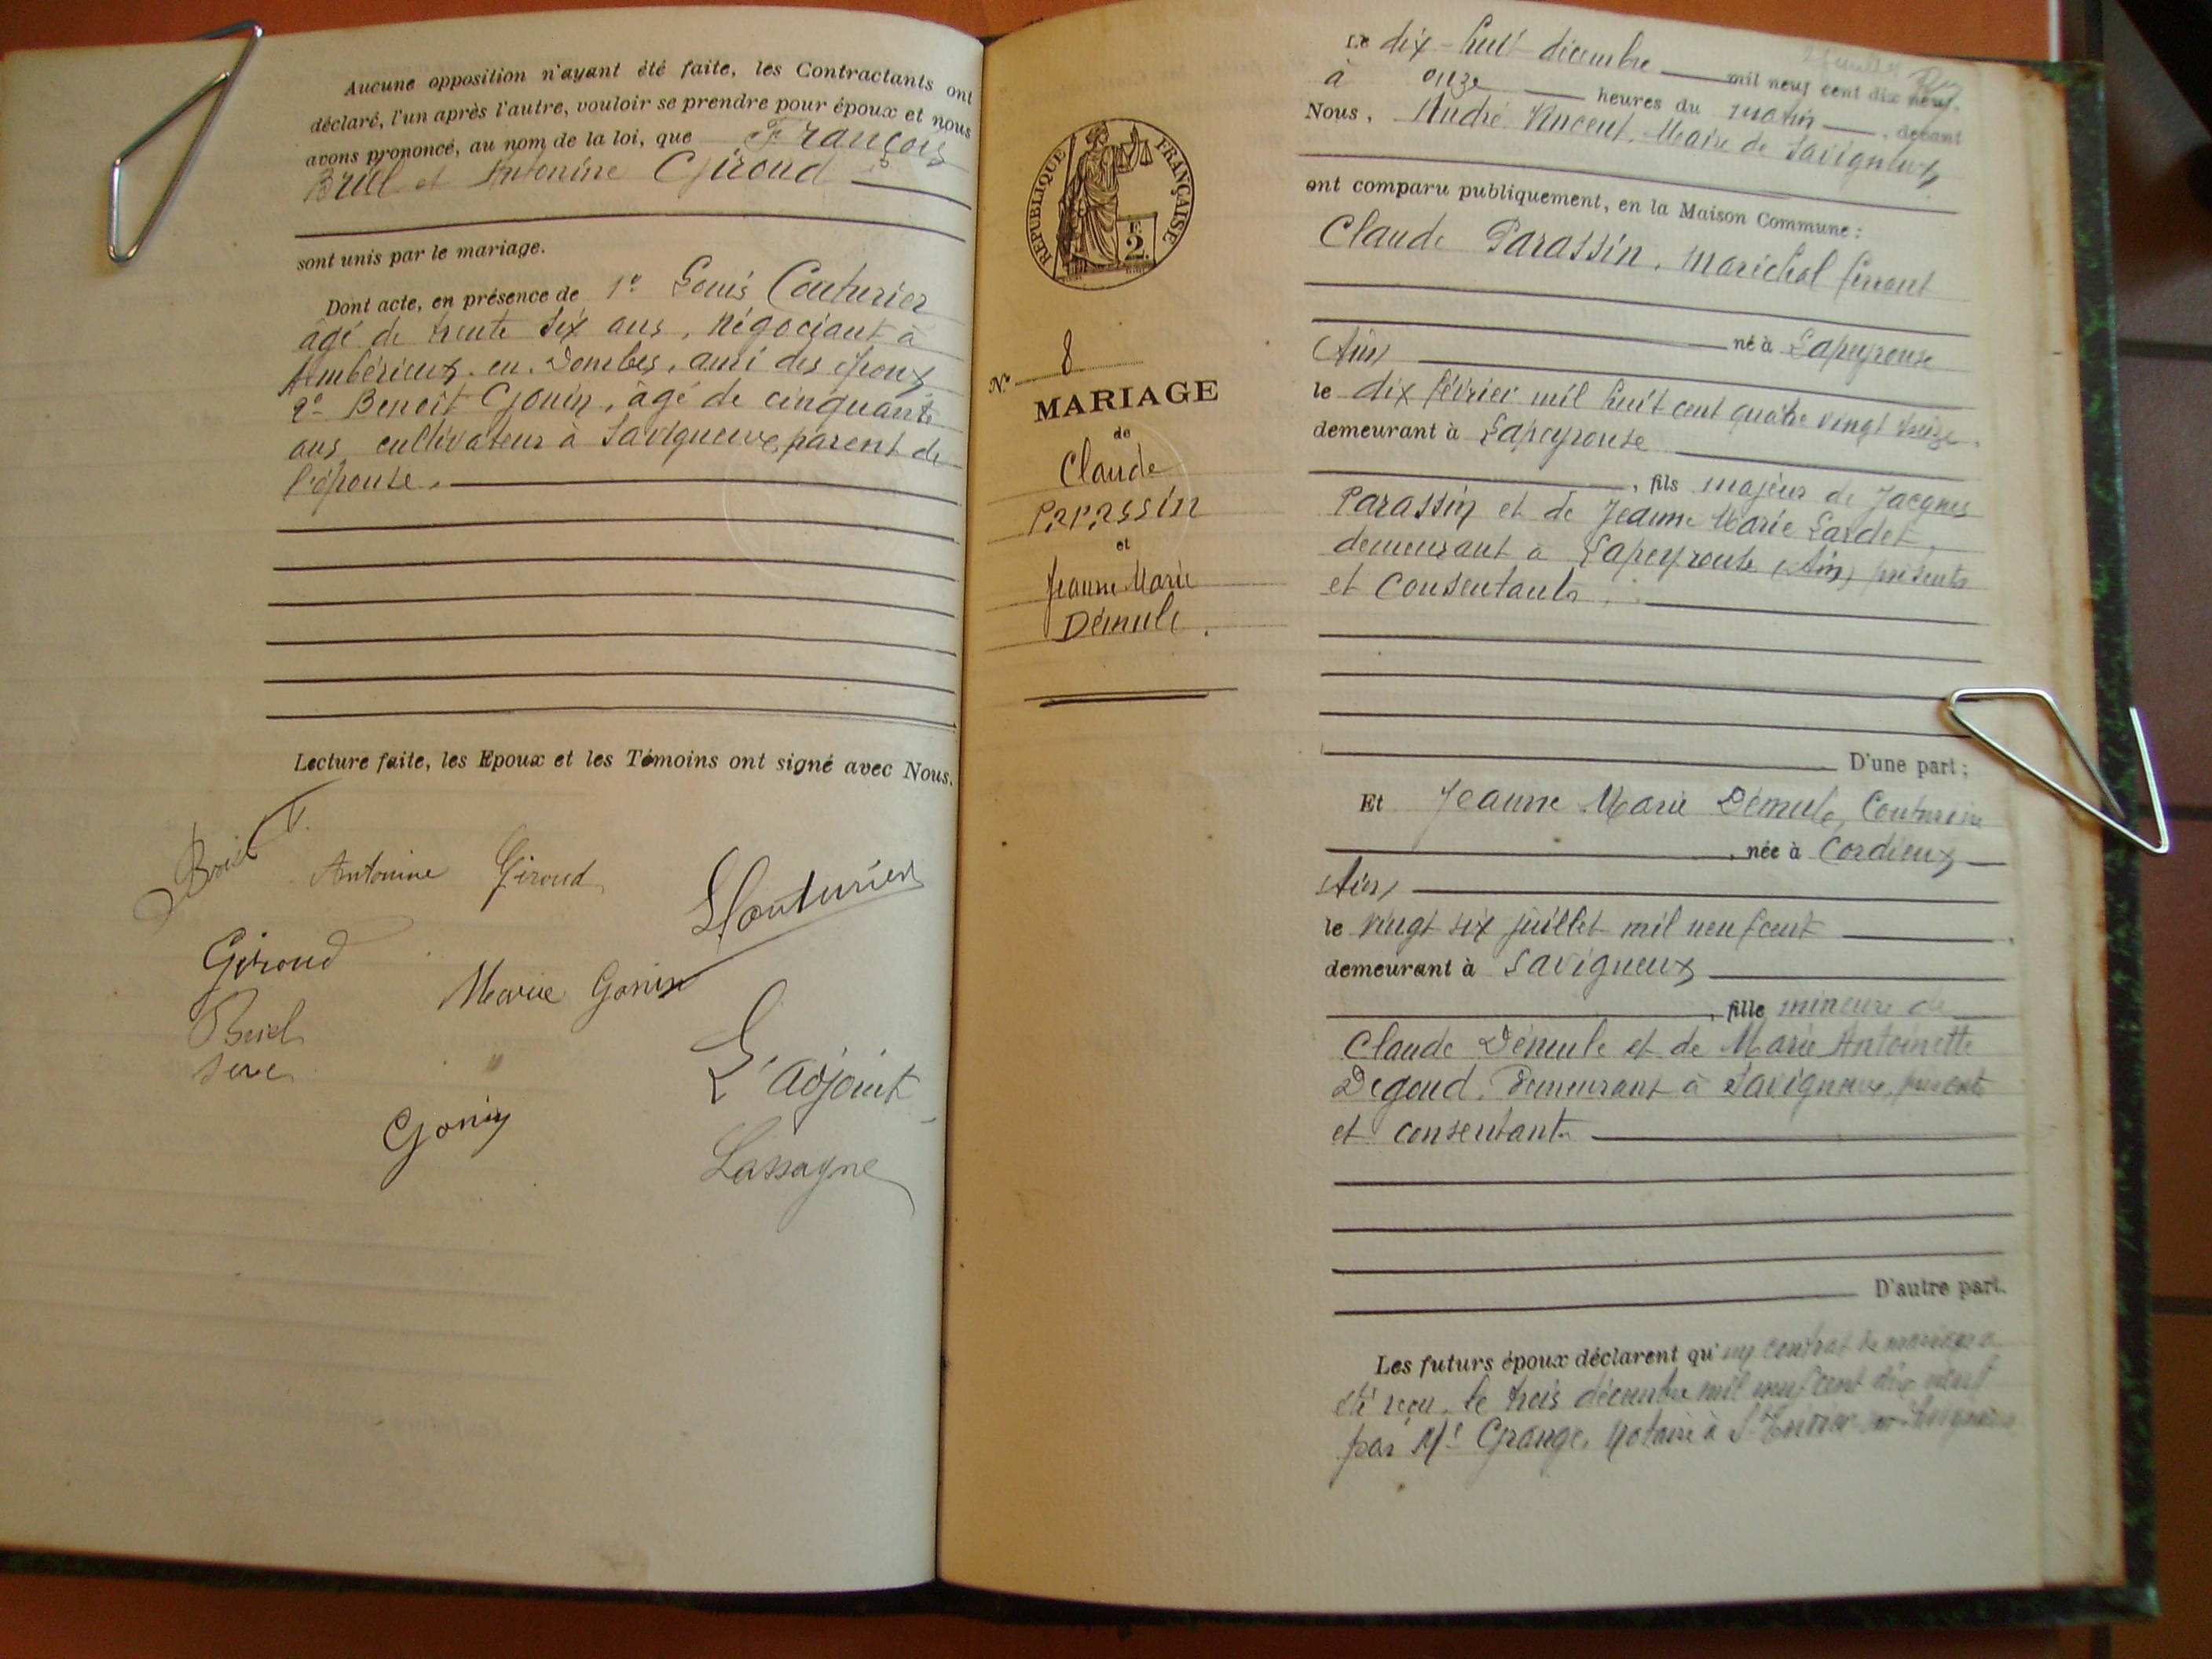 Aucune opposition n'ayant été faite, les Contractants ont
déclaré, l'un après l'autre, vouloir se prendre pour époux et nous
avons prononcé, au nom de la loi, que François
Bruel et Antonine Giroud
sont unis par le mariage.
Dont acte, en présence de 1º Louis Couturier
âgé de trente six ans, négociant à
Ambérieux-en-Dombes, ami des époux,
2º Benoit Gonin, âgé de cinquante
ans, cultivateur à Savigneux, parent de
l'épouse.
Lecture faite, les Epoux et les Témoins ont signé avec Nous.
Antonine Giroud
LCouturier
Giroud
Marie Gonin
L'adjoint
Gonin
Lassagne
REPUBLIQUE FRANÇAISE
2
Nº 8
MARIAGE
de
Claude
Parassin
et
Jeanne Marie
Démule.
Le dix-huit décembre mil neuf cent dix neuf,
à onze heures du matin, devant
Nous, André Vincent, Maire de Savigneux,
ont comparu publiquement, en la Maison Commune :
Claude Parassin, maréchal ferrant
né à Lapeyrouse
(Ain)
le dix février mil huit cent quatre vingt treize,
demeurant à Lapeyrouse
, fils majeur de Jacques
Parassin et de Jeanne Marie Lardet,
demeurant à Lapeyrouse (Ain) présents
et consentants,
D'une part ;
Et Jeanne Marie Démule, Couturière
, née à Cordieux
(Ain)
le vingt six juillet mil neuf cent
demeurant à Savigneux
, fille mineure de
Claude Démule et de Marie Antoinette
Degoud, demeurant à Savigneux, présents
et consentants
D'autre part.
Les futurs époux déclarent qu'un contrat de mariage a
été reçu, le trois décembre mil neuf cent dix neuf
par Me Grange, Notaire à St Trivier